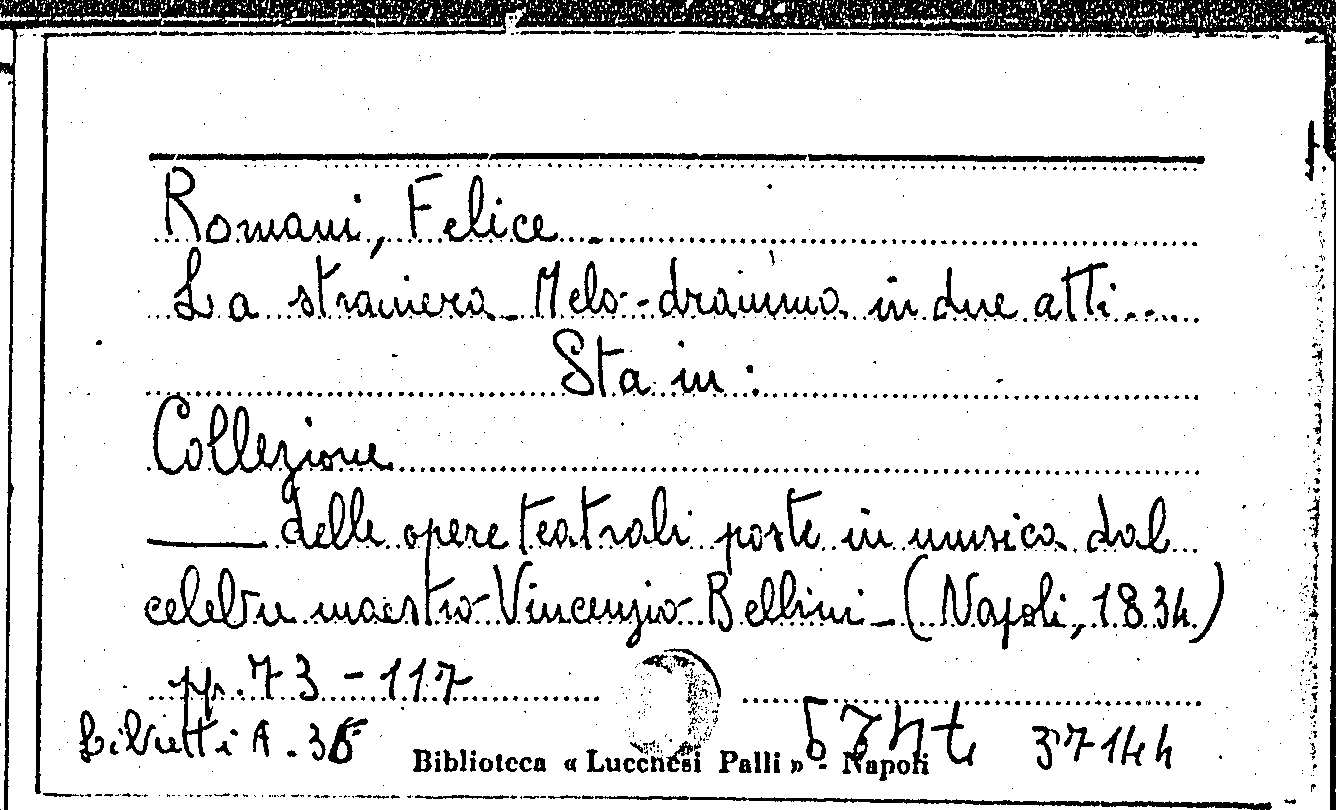 Romani, Felice
La straniera. Melo-dramma in due atti....
Sta in:
Collezione
___ delle opere teatrali poste in musica dal
celebre maestro Vincenzio Bellini - (Napoli, 1834)
pp. 73 - 117
Libretti A. 36 37144
Biblioteca « Lucchesi Palli » - Napoli